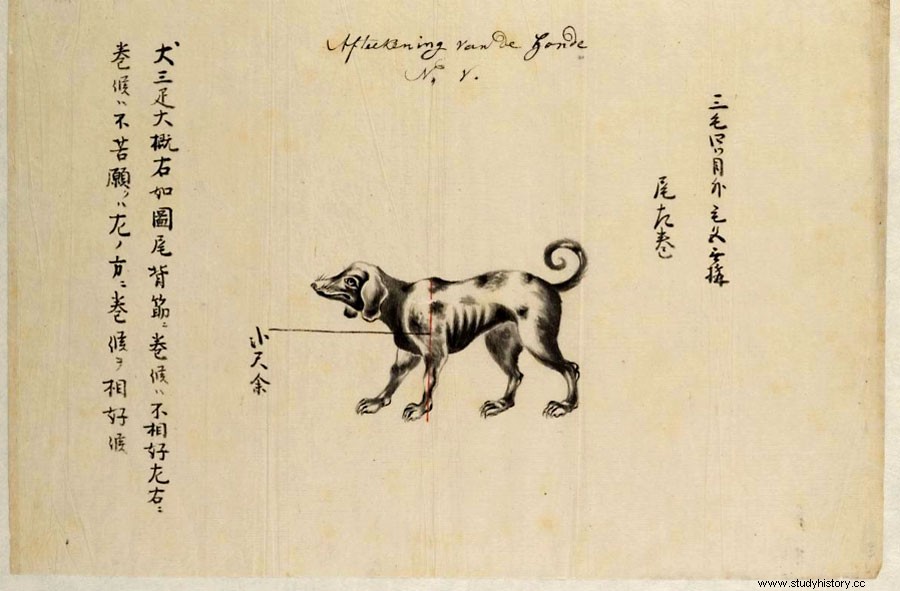 Afteekening van de Honde
三毛四ツ目外毛文無構
尾左巻
尺余
犬三疋大概右如圖尾背節ニ巻候ハ不相好左右ニ
巻候ハ不苦願クハ左ノ方ニ巻候ヲ相好候
www.studyhistory.cc